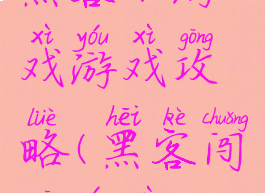 xì yóu xì gōng
戏游戏攻
lüè hēi kè chuǎng
略(黑客闯